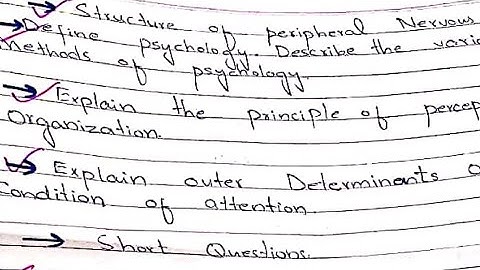 → Structure of peripheral Nervous
→ Define psychology. Describe the vario
methods of psychology.
→ Explain the principle of percep
Organization.
→ Explain outer Determinents o
Condition of attention
→ Short Questions.